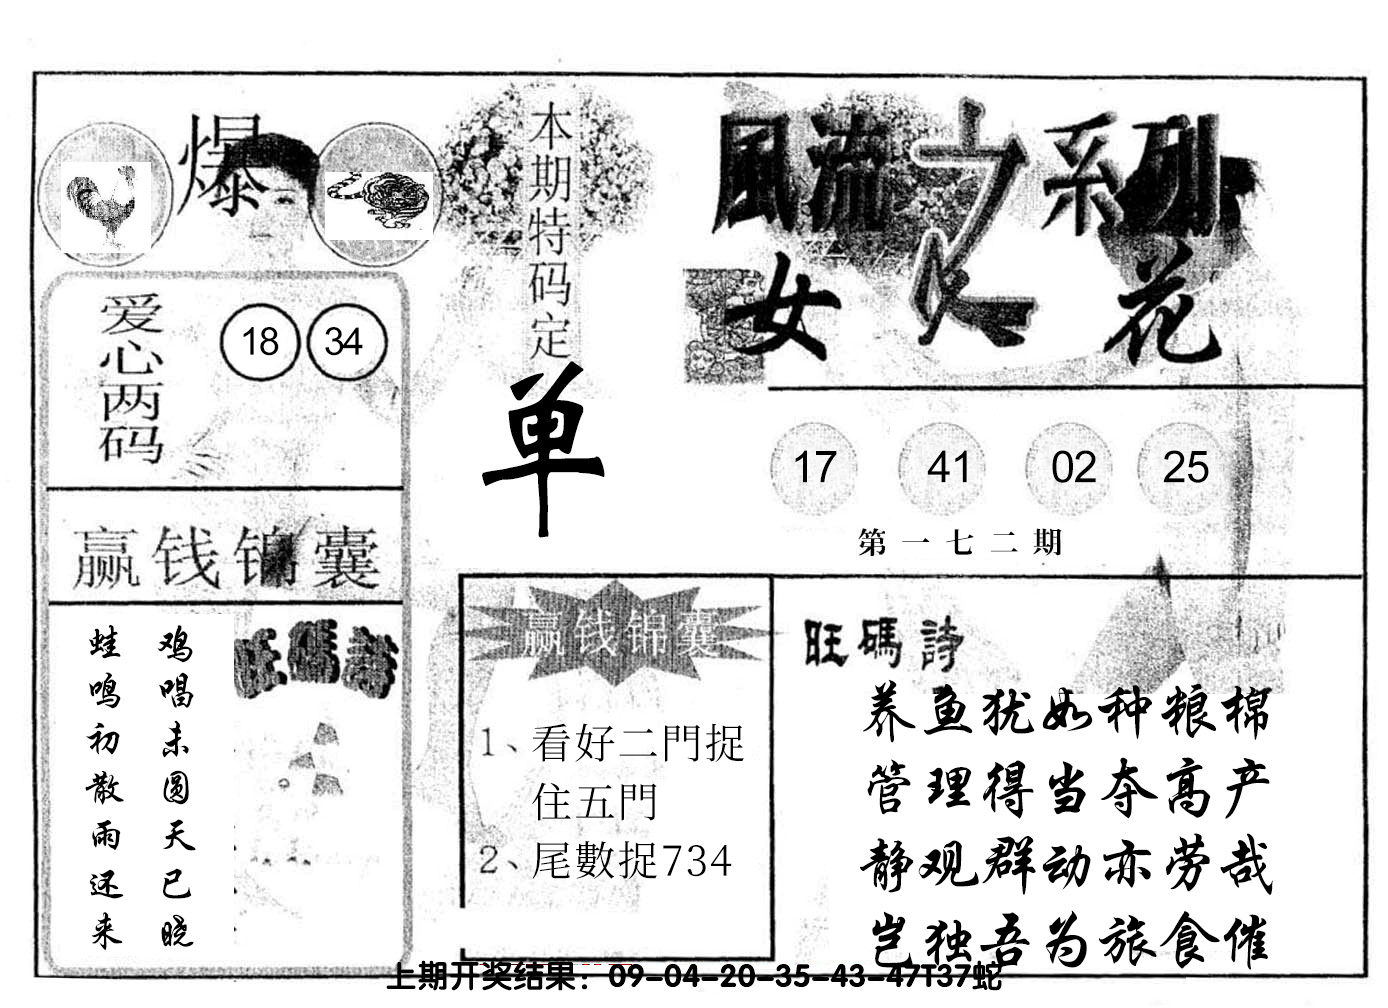 爆
本期特码定
单
風流之系列
女人花
爱心两码
18 34
17 41 02 25
第一七二期
赢钱锦囊
旺碼詩
鸡唱未圆天已晓
蛙鸣初散雨还来
赢钱锦囊
1、看好二門捉
住五門
2、尾數捉734
旺碼詩
养鱼犹如种粮棉
管理得当夺高产
静观群动亦劳哉
岂独吾为旅食催
上期开奖结果：09-04-20-35-43-47T37蛇